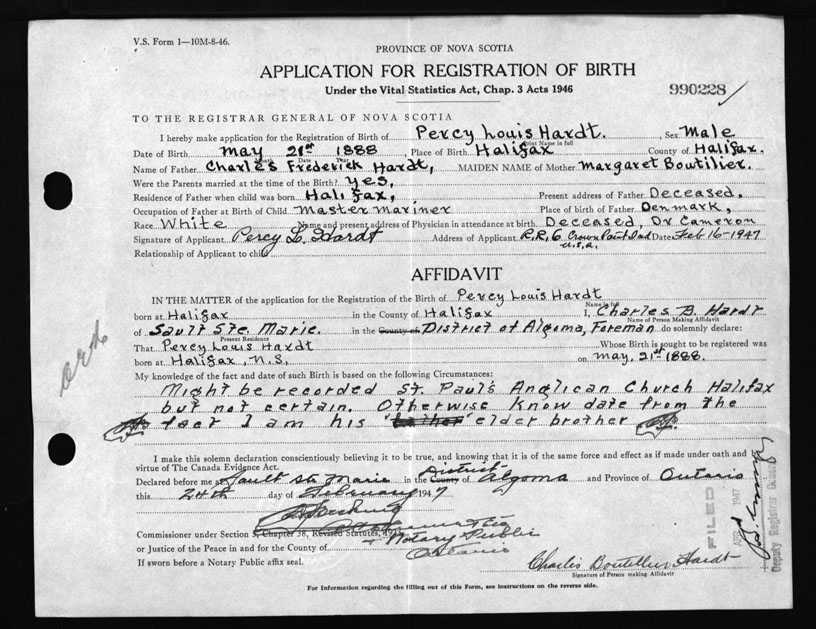 V.S. Form 1—10M-8-46.
PROVINCE OF NOVA SCOTIA
APPLICATION FOR REGISTRATION OF BIRTH
Under the Vital Statistics Act, Chap. 3 Acts 1946
990228
TO THE REGISTRAR GENERAL OF NOVA SCOTIA
I hereby make application for the Registration of Birth of Percy Louis Hardt. , Sex Male
Print Name in full
Date of Birth May 21st 1888 , Place of Birth Halifax County of Halifax.
Month Date Year
Name of Father Charles Frederick Hardt, MAIDEN NAME of Mother Margaret Boutilier.
Were the Parents married at the time of the Birth? Yes,
Residence of Father when child was born Halifax, Present address of Father Deceased,
Occupation of Father at Birth of Child Master Mariner Place of birth of Father Denmark,
Race White Name and present address of Physician in attendance at birth Deceased, Dr Cameron
Signature of Applicant Percy L. Hardt Address of Applicant R.R. 6 Crown Point Ind Date Feb 16-1947
U.S.A.
Relationship of Applicant to child
AFFIDAVIT
IN THE MATTER of the application for the Registration of the Birth of Percy Louis Hardt
Name in full
born at Halifax in the County of Halifax I, Charles B. Hardt
Name of Person Making Affidavit
of Sault Ste. Marie. in the County of District of Algoma, Foreman do solemnly declare:
Present Residence
That Percy Louis Hardt Whose Birth is sought to be registered was
born at Halifax, N.S. on May, 21st 1888.
My knowledge of the fact and date of such Birth is based on the following Circumstances:
Might be recorded St. Paul's Anglican Church Halifax
but not certain. Otherwise Know date from the
fact I am his "father" elder brother
I make this solemn declaration conscientiously believing it to be true, and knowing that it is of the same force and effect as if made under oath and
virtue of The Canada Evidence Act.
Declared before me at Sault Ste Marie in the County of District Algoma and Province of Ontario
this 24th day of February 1947
Commissioner under Section 5, Chapter 38, Revised Statutes,
Notary Public
or Justice of the Peace in and for the County of Ontario
If sworn before a Notary Public affix seal.
Charles Boutilier Hardt
Signature of Person making Affidavit
FILED
APR 1947
Deputy Registrar General
For Information regarding the filling out of this Form, see instructions on the reverse side.